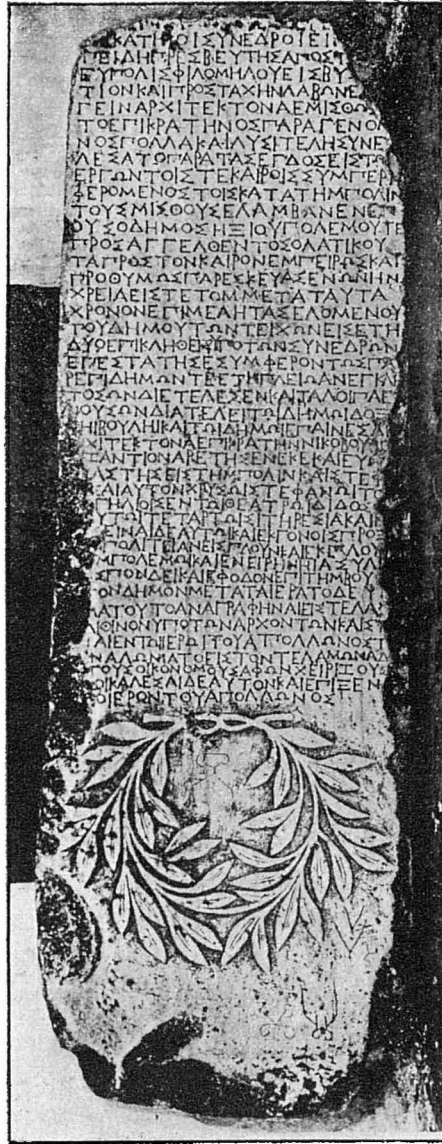 ΚΑΤΙΡΟΙΣΥΝΕΔΡΟΙΕΙ
ΠΕΙΔΗΠΡΕΣΒΕΥΤΗΣΑΠΟΣΤ
ΕΥΠΟΛΙΣΦΙΛΟΜΗΛΟΥΕΙΣΒΥ
ΤΙΟΝΚΑΙΠΡΟΣΤΑΧΗΝΛΑΒΩΝΕ
ΓΕΙΝΑΡΧΙΤΕΚΤΟΝΑΕΜΙΣΘΩΣ
ΤΟΕΠΙΚΡΑΤΗΝΟΣΠΑΡΑΓΕΝΟ
ΝΟΣΠΟΛΛΑΚΑΙΛΥΣΙΤΕΛΗΣΥΝΕ
ΛΕΣΑΤΩΠΑΡΑΤΑΣΕΓΔΟΣΕΙΣΤ
ΕΡΓΩΝΤΟΙΣΤΕΚΑΙΡΟΙΣΣΥΜΠΕΡΙ
ΦΕΡΟΜΕΝΟΣΤΟΙΣΚΑΤΑΤΗΜΠΟΛΙΝ
ΤΟΥΣΜΙΣΘΟΥΣΕΛΑΜΒΑΝΕΝΕΓ
ΟΥΣΟΔΗΜΟΣΗΞΙΟΥΠΟΛΕΜΟΥΤΕ
ΠΡΟΣΑΓΓΕΛΘΕΝΤΟΣΟΛΑΤΙΚΟΥ
ΤΑΠΡΟΣΤΟΝΚΑΙΡΟΝΕΜΠΕΙΡΩΣΚΑΙ
ΠΡΟΘΥΜΩΣΠΑΡΕΣΚΕΥΑΣΕΝΩΝΗΝ
ΧΡΕΙΑΕΙΣΤΕΤΟΜΜΕΤΑΤΑΥΤΑ
ΧΡΟΝΟΝΕΠΙΜΕΛΗΤΑΣΕΛΟΜΕΝΟΥ
ΤΟΥΔΗΜΟΥΤΩΝΤΕΙΧΩΝΕΙΣΕΤΗ
ΔΥΟΕΠΙΚΛΗΘΕΙΣΥΠΟΤΩΝΣΥΝΕΔΡΩΝ
ΕΠΕΣΤΑΤΗΣΕΣΥΜΦΕΡΟΝΤΩΣΠΑ
ΡΕΠΙΔΗΜΩΝΤΕΕΤΗΠΛΕΙΩΑΝΕΓΚΛΗ
ΤΟΣΩΝΔΙΕΤΕΛΕΣΕΝΚΑΙΤΑΛΟΙΠΑΕΥ
ΝΟΥΣΩΝΔΙΑΤΕΛΕΙΤΩΙΔΗΜΩΙΔΟ
ΤΗΙΒΟΥΛΗΙΚΑΙΤΩΙΔΗΜΩΙΕΠΑΙΝΕΣΑΙ
ΧΙΤΕΚΤΟΝΑΕΠΙΚΡΑΤΗΝΝΙΚΟΒΟΥΛΟΥ
ΠΑΝΤΙΟΝΑΡΕΤΗΣΕΝΕΚΕΚΑΙΕΥΝ
ΑΣΤΗΣΕΙΣΤΗΜΠΟΛΙΝΚΑΙΣΤΕΦ
ΚΑΙΑΥΤΟΝΧΡΥΣΩΙΣΤΕΦΑΝΩΙΤΟ
ΠΗΛΙΟΙΣΕΝΤΩΙΘΕΑΤΡΩΙΔΙΔΟΣ
ΥΤΩΙΤΕΤΑΡΓΩΙΣΙΤΗΡΕΣΙΑΚΑΙΝ
ΕΙΝΑΙΔΕΑΥΤΩΙΚΑΙΕΚΓΟΝΟΙΣΠΡΟΞ
ΠΟΛΙΤΕΙΑΝΕΙΣΠΛΟΥΝΚΑΙΕΚΠΛΟΥ
ΠΟΛΕΜΩΙΚΑΙΕΝΕΙΡΗΝΗΙΑΣΥΛ
ΣΠΟΝΔΕΙΚΑΙΕΦΟΔΟΝΕΠΙΤΗΜΒΟΥ
ΟΝΔΗΜΟΝΜΕΤΑΤΑΙΕΡΑΤΟΔΕΨ
ΑΤΟΥΤΟΑΝΑΓΡΑΦΗΝΑΙΕΙΣΤΕΛΑΜ
ΙΘΙΝΟΝΥΠΟΤΩΝΑΡΧΟΝΤΩΝΚΑΙΣΤ
ΑΙΕΝΤΩΙΙΕΡΩΙΤΟΥΑΠΟΛΛΩΝΟΣΤ
ΝΑΛΩΜΑΤΟΕΙΣΤΟΝΤΕΛΑΜΩΝΑΔ
ΤΟΥΣΟΙΚΟΝΟΜΟΥΣΑΦΩΝΧΕΙΡΙΖΟΥ
ΟΙΚΑΛΕΣΑΙΔΕΑΥΤΟΝΚΑΙΕΠΙΞΕΝ
ΟΙΕΡΟΝΤΟΥΑΠΟΛΛΩΝΟΣ